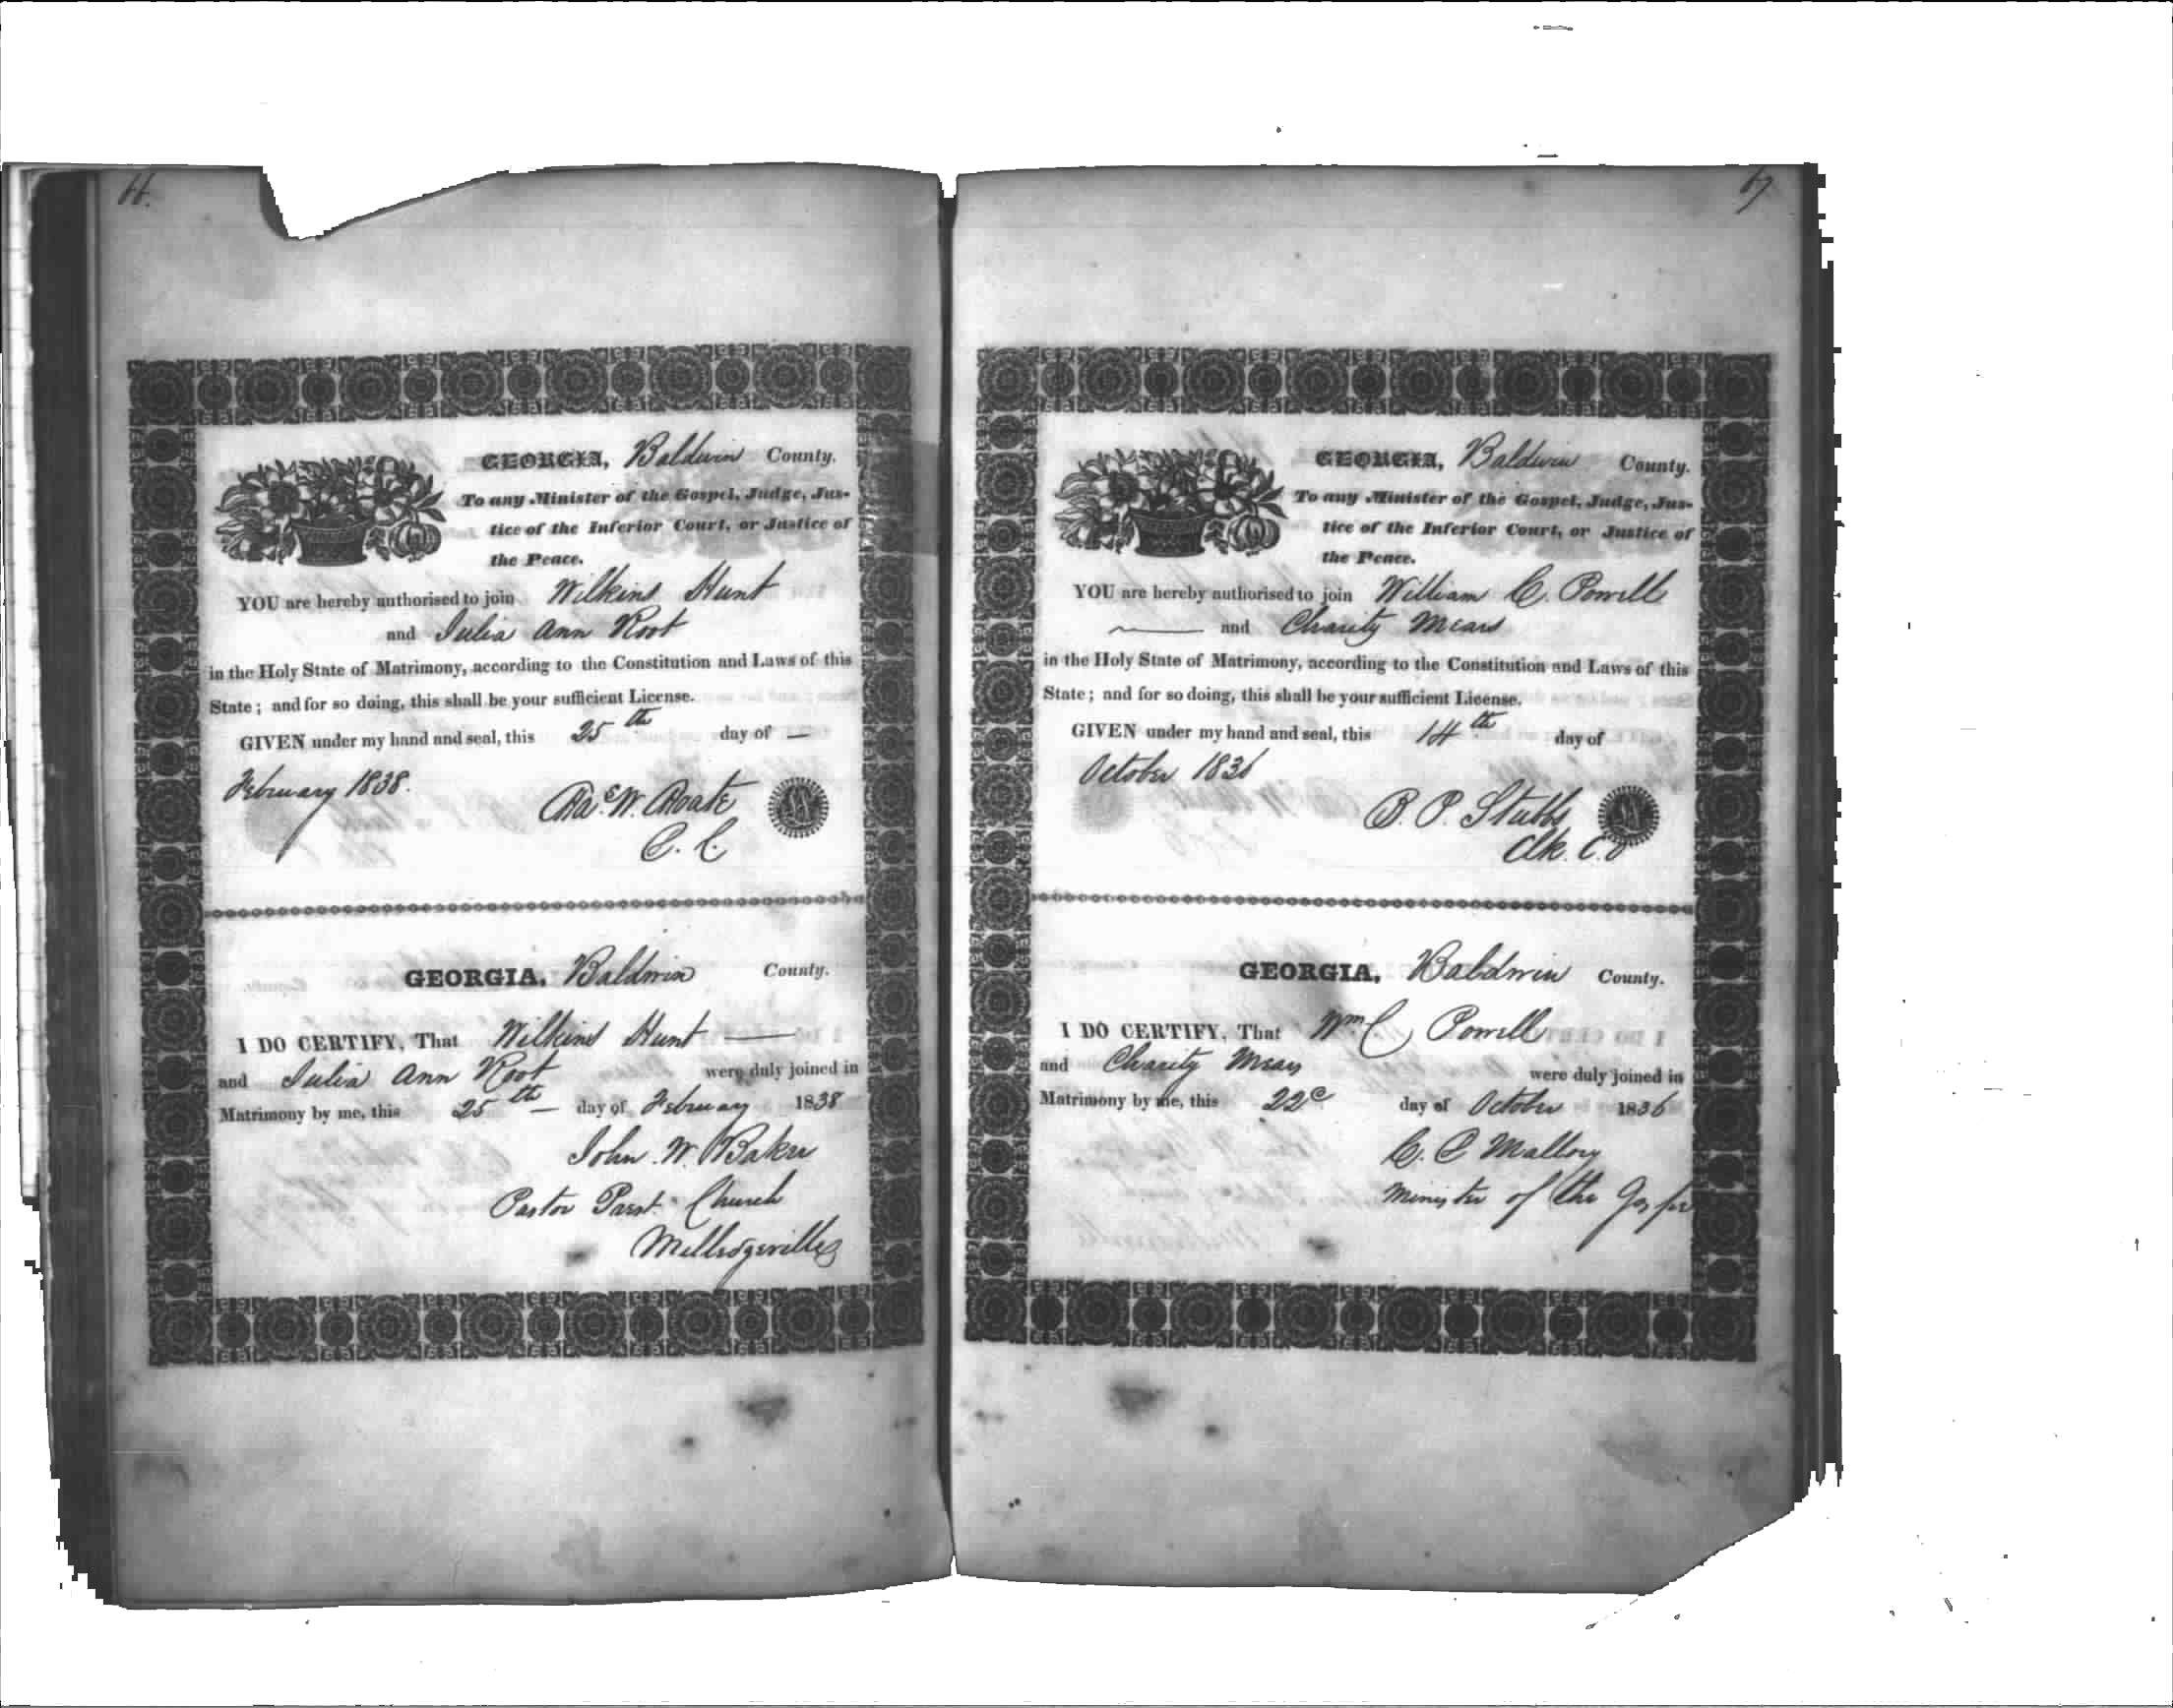 66.
GEORGIA, Baldwin County.
To any Minister of the Gospel, Judge, Jus-
tice of the Inferior Court, or Justice of
the Peace.
YOU are hereby authorised to join Wilkins Hunt
and Julia Ann Root
in the Holy State of Matrimony, according to the Constitution and Laws of this
State; and for so doing, this shall be your sufficient License.
GIVEN under my hand and seal, this 25th day of —
February 1838.
W. Choate
C. C.
GEORGIA, Baldwin County.
I DO CERTIFY, That Wilkins Hunt —
and Julia Ann Root were duly joined in
Matrimony by me, this 25th — day of February 1838
John W. Baker
Pastor Church
Milledgeville
67
GEORGIA, Baldwin County.
To any Minister of the Gospel, Judge, Jus-
tice of the Inferior Court, or Justice of
the Peace.
YOU are hereby authorised to join William C. Powell
— and Charity Mears
in the Holy State of Matrimony, according to the Constitution and Laws of this
State; and for so doing, this shall be your sufficient License.
GIVEN under my hand and seal, this 14th day of
October 1836
B. P. Stubbs
Clk. C. O
GEORGIA, Baldwin County.
I DO CERTIFY, That Wm C Powell
and Charity Mears were duly joined in
Matrimony by me, this 22d day of October 1836
C. D Mallory
Minister of the Gospel